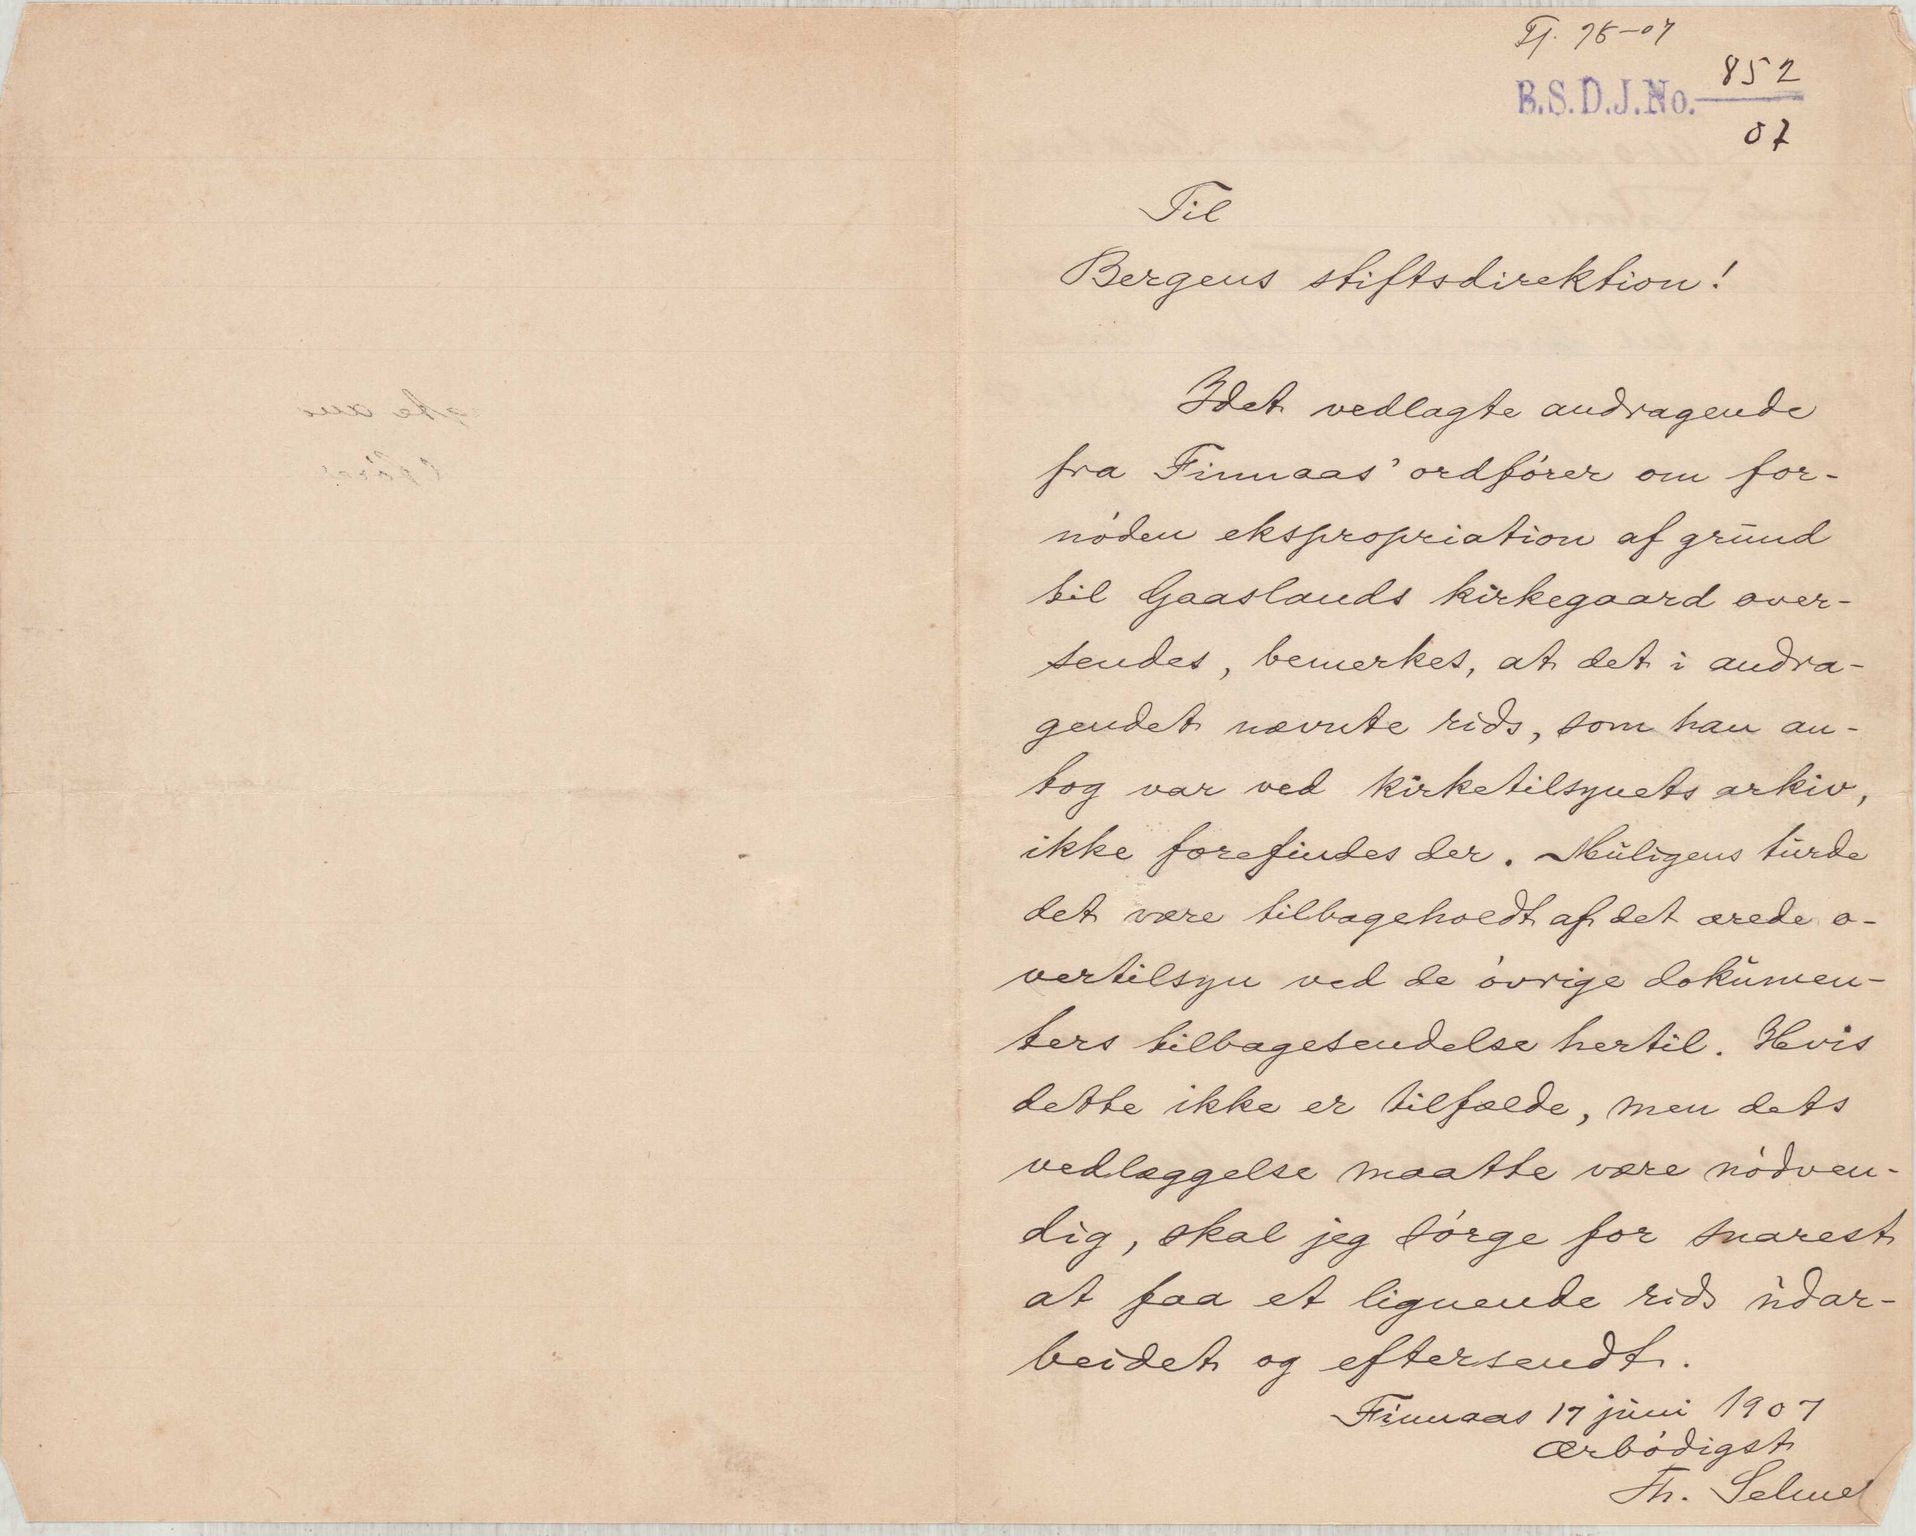 Fj. 76-07
852
B.S.D.J.No.
07
Til
Bergens stiftsdirektion!
Idet vedlagte andragende
fra Finnaas' ordfórer om for-
nóden ekspropriation af grund
til Gaaslands kirkegaard over-
sendes, bemerkes, at det i andra-
gendet nævnte rids, som han an-
tog var ved kirketilsynets arkiv,
ikke forefindes der. Muligens turde
det være tilbageholdt af det ærede o-
vertilsyn ved de óvrige dokumen-
ters tilbagesendelse hertil. Hvis
dette ikke er tilfælde, men dets
vedlæggelse maatte være nódven-
dig, skal jeg sórge for snarest
at faa et lignende rids udar-
beidet og eftersendt.
Finnaas 17 juni 1907
ærbódigst
Th. Selmer